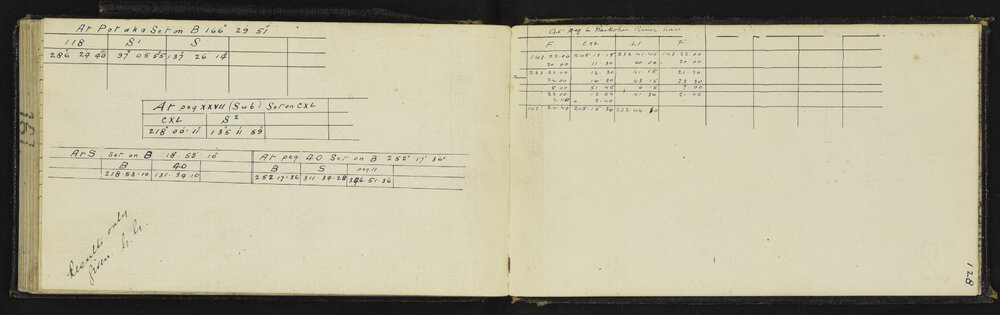 At Potaka Set on B 166° 29' 51"
118 S¹ S
286 24 40 37 05 55 137 26 14
At peg XXVII (Sub) Set on CXL
CXL S²
218 00 11 135 11 59
At S Set on B 18 53 10
B 40
218.53.10 131.34.10
At peg 40 Set on B 252° 17' 36"
B S peg 11
252.17.36 311.34.28 346.51.36
Results only
given
At Peg L
F CXL L1 F
143 22.00 245 13 15 232.41.15 143 22.00
20.00 11 30 40 00 20 00
233 22.00 12 30 41 15 21 30
22.00 14 30 43 15 23 30
8 00 51 45 6 15 7 00
22.00 13 56 41 34 21 45
2.40 2.40
143 24.40 245.15.36 232 44
128